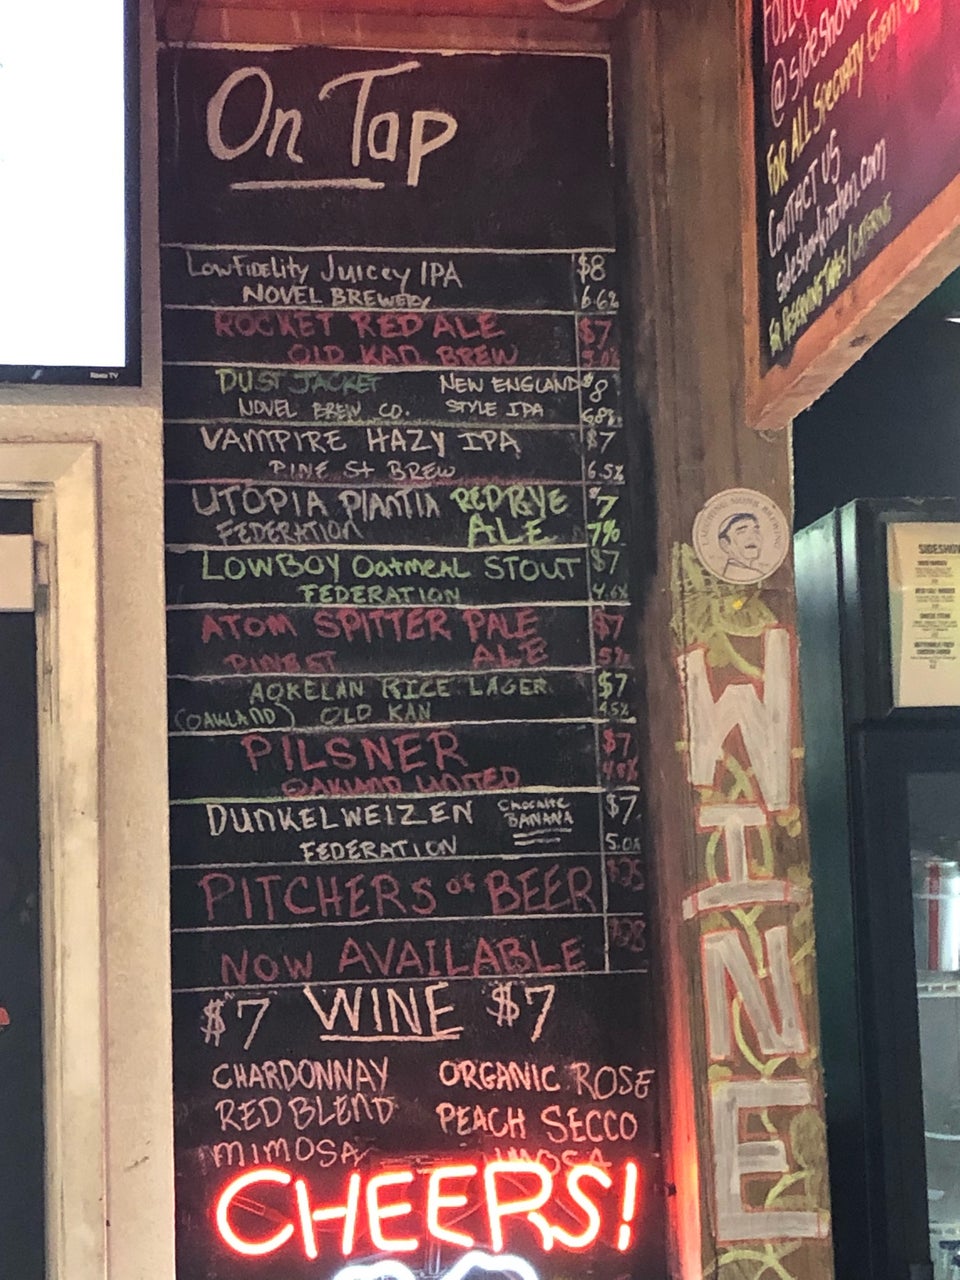 On Tap
Lowfidelity Juicey IPA $8
NOVEL BREWERY 6.6%
ROCKET RED ALE $7
OLD KAN BREW
DUST JACKET NEW ENGLAND $8
NOVEL BREW CO. STYLE IPA 6.8%
VAMPIRE HAZY IPA $7
PINE St BREW 6.5%
UTOPIA PlANTIA RED RYE $7
FEDERATION ALE 7%
LOWBOY OatmeAL STOUT $7
FEDERATION 4.6%
ATOM SPITTER PALE $7
PINE ST ALE 5%
AOKELAN RICE LAGER $7
(OAKLAND) OLD KAN 4.5%
PILSNER $7
OAKLAND UNITED
DUNKELWEIZEN Chocolate BANANA $7
FEDERATION 5.0%
PITCHERS of BEER $25
NOW AVAILABLE $28
$7 WINE $7
CHARDONNAY ORGANIC ROSE
RED BLEND PEACH SECCO
MIMOSA
CHEERS!
WINE
@sideshow
FOR ALL Specialty Event
CONTACT US
sideshowkitchen.com
LAUGHING MONK BREWING
SIDESHOW
Roku TV